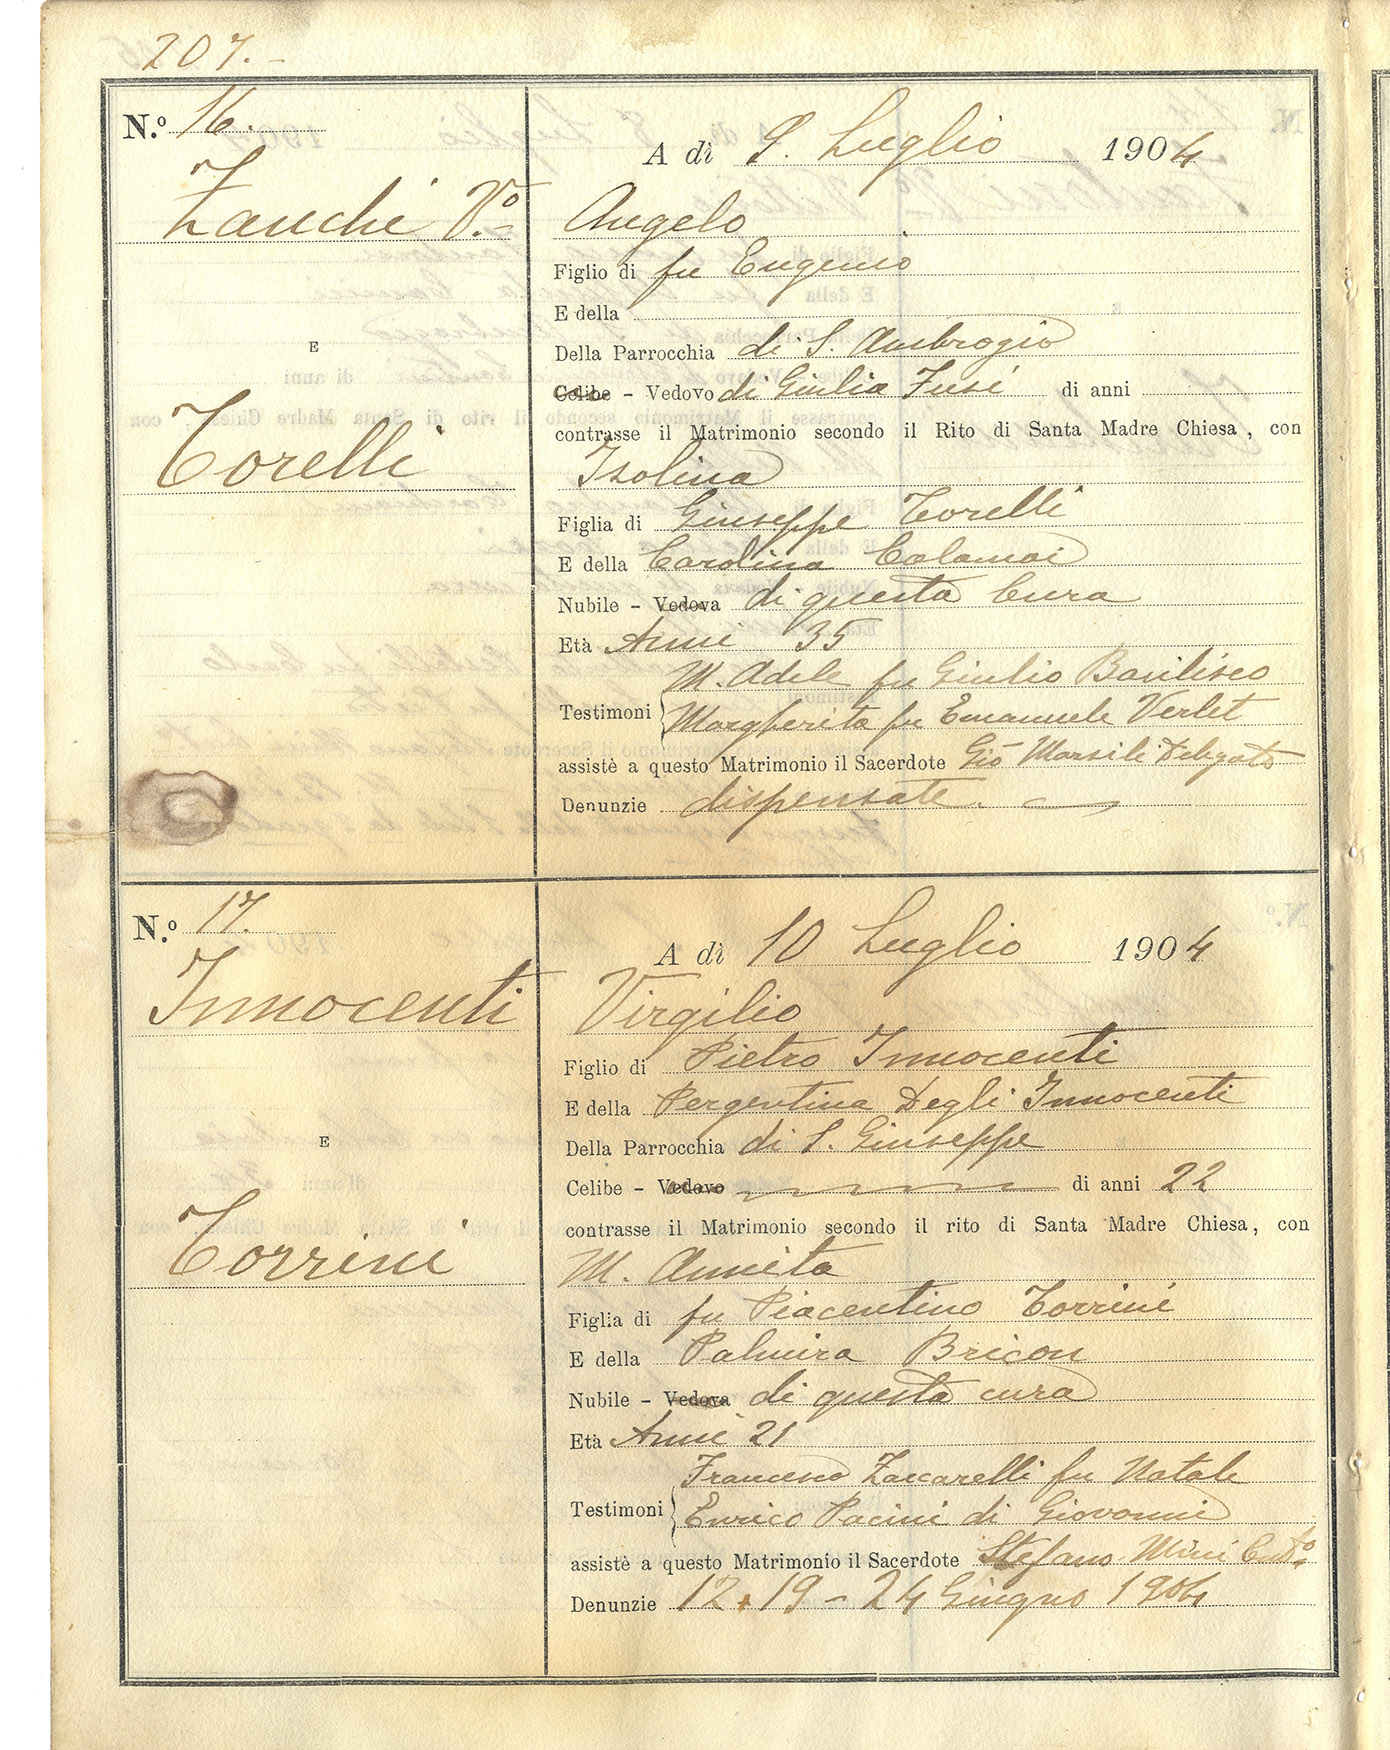 207.-
N.º 16.
A dì 9. Luglio 1904
Zanchi V.º
Angelo
Figlio di fu Eugenio
E della
E
Della Parrocchia di S. Ambrogio
Celibe - Vedovo di Giulia Fusi di anni
contrasse il Matrimonio secondo il Rito di Santa Madre Chiesa, con
Torelli
Isolina
Figlia di Giuseppe Torelli
E della Carolina Calamai
Nubile - Vedova di questa Cura
Età Anni 35
M. Adele fu Giulio Basilisco
Testimoni Margherita fu Emanuele Verlet
assistè a questo Matrimonio il Sacerdote Gio Marsili Delegato
Denunzie dispensate.
N.º 17.
A dì 10 Luglio 1904
Innocenti
Virgilio
Figlio di Pietro Innocenti
E della Pergentina Degli Innocenti
E
Della Parrocchia di S. Giuseppe
Celibe - Vedovo di anni 22
contrasse il Matrimonio secondo il rito di Santa Madre Chiesa, con
Torrini
M. Annita
Figlia di fu Piacentino Torrini
E della Palmira Bricon
Nubile - Vedova di questa cura
Età Anni 21
Francesco Zaccarelli fu Natale
Testimoni Enrico Pacini di Giovanni
assistè a questo Matrimonio il Sacerdote Stefano Mini
Denunzie 12, 19 - 24 Giugno 1904